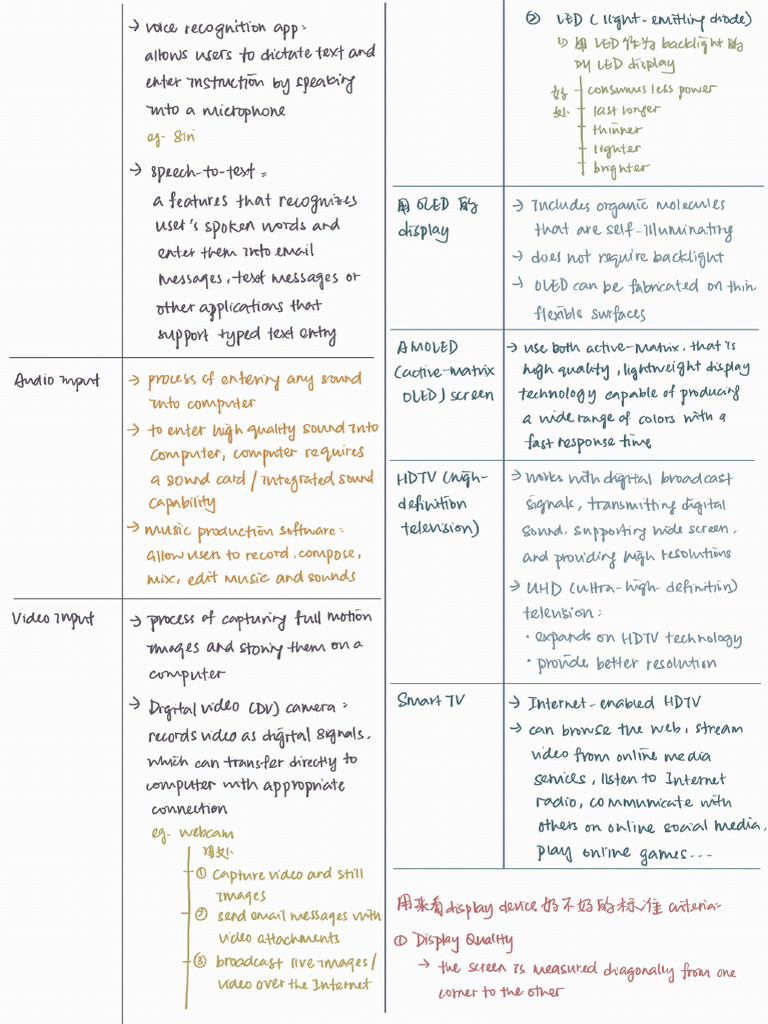 → voice recognition app =
allows users to dictate text and
enter instruction by speaking
into a microphone
eg- Siri
→ speech-to-text =
a features that recognizes
user's spoken words and
enter them into email
messages, text messages or
other applications that
support typed text entry
Audio input
→ process of entering any sound
into computer
→ to enter high quality sound into
computer, computer requires
a sound card / integrated sound
capability
→ music production software =
allow users to record, compose,
mix, edit music and sounds
Video input
→ process of capturing full motion
images and storing them on a
computer
→ Digital video (DV) camera =
records video as digital signals,
which can transfer directly to
computer with appropriate
connection
eg- webcam
用处
① capture video and still
images
② send email messages with
video attachments
③ broadcast live images /
video over the Internet
② LED (light-emitting diode)
↳ 用 LED 作为 backlight 的
叫 LED display
好处
consumes less power
last longer
thinner
lighter
brighter
用 OLED 的
display
→ includes organic molecules
that are self-illuminating
→ does not require backlight
→ OLED can be fabricated on thin
flexible surfaces
AMOLED
(active-matrix
OLED) screen
→ use both active-matrix, that is
high quality, lightweight display
technology capable of producing
a wide range of colors with a
fast response time
HDTV (high-
definition
television)
→ works with digital broadcast
signals, transmitting digital
sound, supporting wide screen,
and providing high resolutions
→ UHD (ultra-high-definition)
television =
• expands on HDTV technology
• provide better resolution
Smart TV
→ Internet-enabled HDTV
→ can browse the web, stream
video from online media
services, listen to Internet
radio, communicate with
others on online social media,
play online games...
用来看 display device 好不好的标准 criteria=
① Display Quality
→ the screen is measured diagonally from one
corner to the other